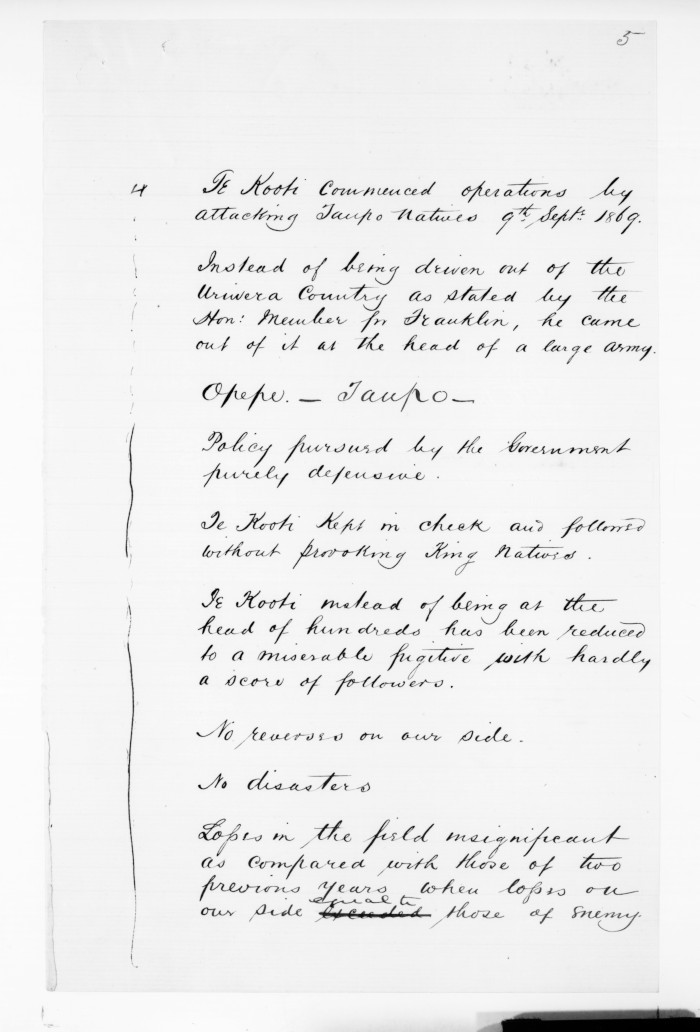 5
4
Te Kooti commenced operations by
attacking Taupo Natives 9th Septr 1869.
Instead of being driven out of the
Uriwera Country as stated by the
Hon: Member for Franklin, he came
out of it at the head of a large army.
Opepe. — Taupo —
Policy pursued by the Government
purely defensive.
Te Kooti kept in check and followed
without provoking King Natives.
Te Kooti instead of being at the
head of hundreds has been reduced
to a miserable fugitive with hardly
a score of followers.
No reverses on our side.
No disasters
Losses in the field insignificant
as compared with those of two
previous years when losses on
equal to
our side exceeded those of Enemy.